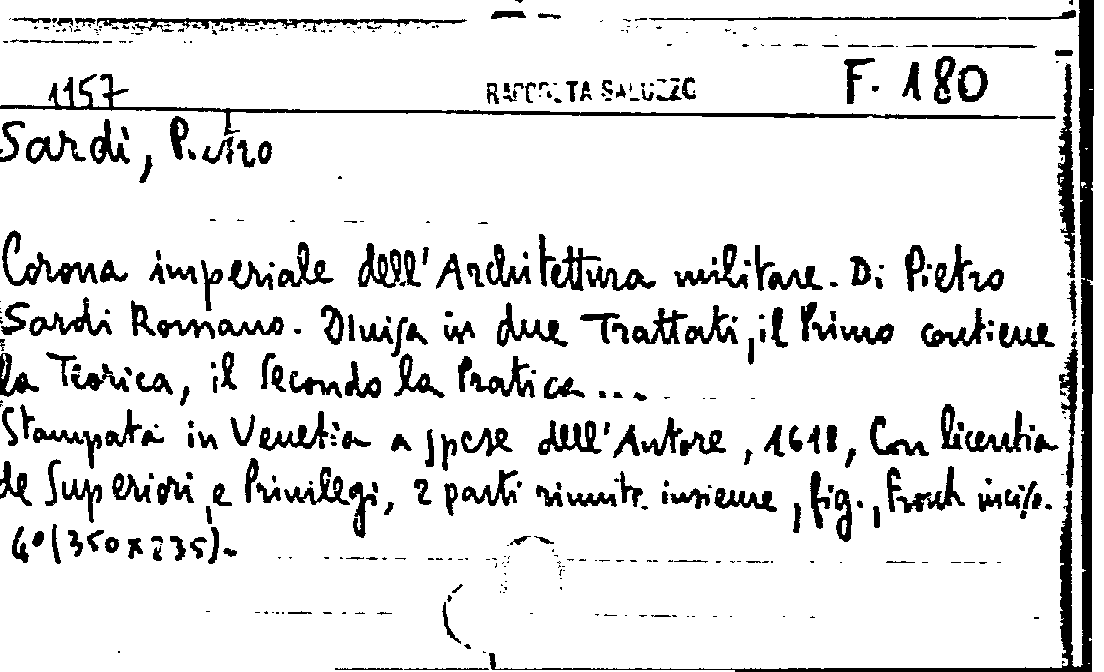 1157 RACCOLTA SALUZZO F. 180
Sardi, Pietro
Corona imperiale dell'Architettura militare. Di Pietro
Sardi Romano. Diuisa in due Trattati, il Primo contiene
la Teorica, il Secondo la Pratica...
Stampata in Venetia a spese dell'Autore, 1618, Con licentia
de Superiori, e Priuilegi, 2 parti riunite insieme, fig., Front. inciso.
4° (350x235).